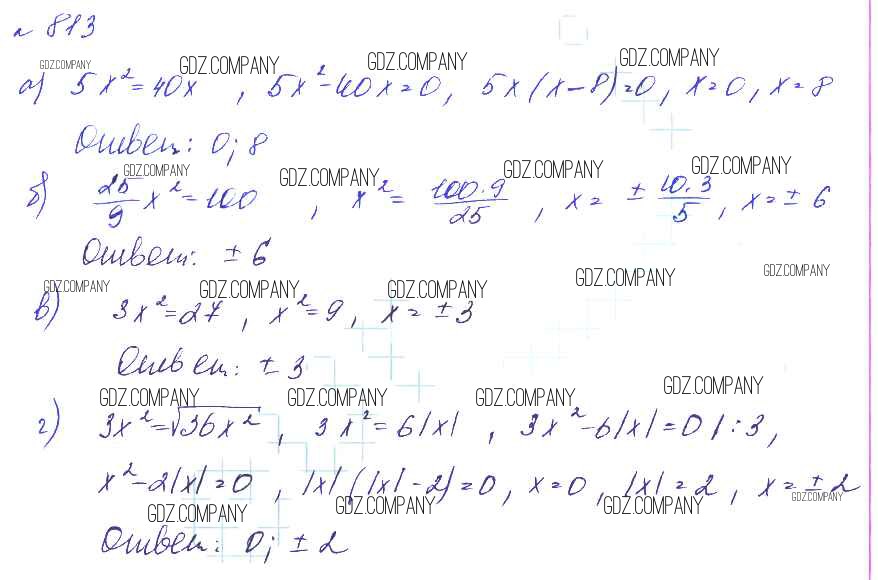 № 813
GDZ.COMPANY GDZ.COMPANY GDZ.COMPANY GDZ.COMPANY
а) 5x² = 40x, 5x² - 40x = 0, 5x(x - 8) = 0, x = 0, x = 8
Ответ: 0; 8
GDZ.COMPANY GDZ.COMPANY GDZ.COMPANY GDZ.COMPANY
б) 25/9 x² = 100, x² = 100·9/25, x = ± 10·3/5, x = ± 6
Ответ: ± 6
GDZ.COMPANY GDZ.COMPANY GDZ.COMPANY GDZ.COMPANY GDZ.COMPANY
в) 3x² = 27, x² = 9, x = ± 3
Ответ: ± 3
GDZ.COMPANY GDZ.COMPANY GDZ.COMPANY GDZ.COMPANY
г) 3x² = √36x², 3x² = 6|x|, 3x² - 6|x| = 0 | : 3,
x² - 2|x| = 0, |x|(|x| - 2) = 0, x = 0, |x| = 2, x = ± 2
GDZ.COMPANY GDZ.COMPANY GDZ.COMPANY GDZ.COMPANY
Ответ: 0; ± 2